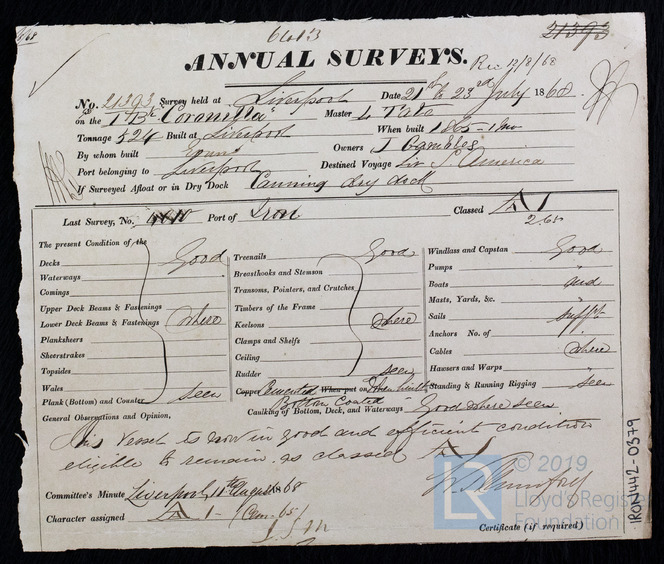 6613 21393
ANNUAL SURVEYS. Rec 12/8/68
No. 21393 Survey held at Liverpool Date 21st to 23rd July 1868
on the I Bk "Coronilla" Master L Tate
Tonnage 524 Built at Liverpool When built 1865 - 1 mo
By whom built Evans Owners J Gambles
Port belonging to Liverpool Destined Voyage Liv S. America
If Surveyed Afloat or in Dry Dock Canning dry dock
Last Survey, No. Port of Iron Classed A 1
2.65
The present Condition of the
Decks Good
Waterways
Comings
Upper Deck Beams & Fastenings
Lower Deck Beams & Fastenings where
Planksheers
Sheerstrakes
Topsides
Wales
Plank (Bottom) and Counter seen
Treenails Good
Breasthooks and Stemson
Transoms, Pointers, and Crutches
Timbers of the Frame
Keelsons where
Clamps and Shelfs
Ceiling
Rudder seen
Copper Cemented When put on When built
Bottom Coated
Caulking of Bottom, Deck, and Waterways Good where seen
Windlass and Capstan Good
Pumps "
Boats and
Masts, Yards, &c. "
Sails suff't
Anchors No. of "
Cables where
Hawsers and Warps "
Standing & Running Rigging seen
General Observations and Opinion,
This Vessel is now in good and efficient condition
eligible to remain as classed A
Committee's Minute Liverpool 11th August 1868
Character assigned A 1 - 1
Certificate (if required)
IRON442-0379
LR © 2019
Lloyd's Register
Foundation